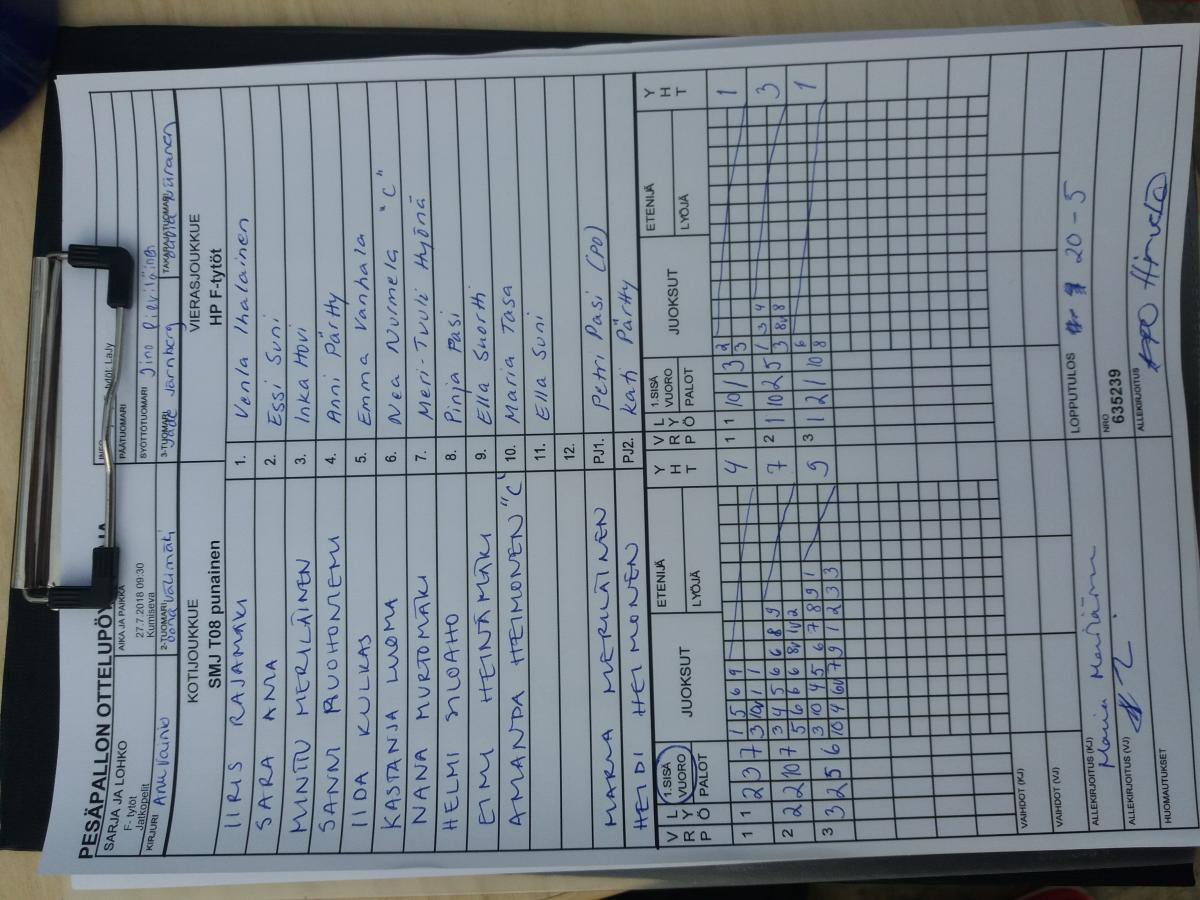 PESÄPALLON OTTELUPÖY
SARJA JA LOHKO
F- tytöt
Jatkopelit
AIKA JA PAIKKA
27.7.2018 09:30
Kumiseva
PÄÄTUOMARI
SYÖTTÖTUOMARI
KIRJURI Anu Vainio
2-TUOMARI
3-TUOMARI Järnberg
TAKARAJATUOMARI
KOTIJOUKKUE
SMJ T08 punainen
VIERASJOUKKUE
HP F-tytöt
IIRIS RAJAMÄKI 1. Venla Ihalainen
SARA ANIA 2. Essi Suni
MINTTU MERILÄINEN 3. Inka Hovi
SANNI RUOHONIEMI 4. Anni Pärtty
IIDA KULKAS 5. Emma Vanhala
KASTANJA LUOMA 6. Nea Nurmela "C"
NANA MURTOMÄKI 7. Meri-Tuuli Hyönä
HELMI SILOAHO 8. Pinja Pasi
EIMI HEINÄMÄKI 9. Ella Suortti
AMANDA HEIMONEN "C" 10. Maria Tasa
11. Ella Suni
12.
MARIA MERILÄINEN PJ1. Petri Pasi (PO)
HEIDI HEIMONEN PJ2. Kati Pärtty
V R L Y P Ö 1.SISÄ VUORO PALOT JUOKSUT ETENIJÄ LYÖJÄ Y H T V R L Y P Ö 1.SISÄ VUORO PALOT JUOKSUT ETENIJÄ LYÖJÄ Y H T
1 1 2 3 7 1 5 6 9 4 1 1 10 1 3 2 1
3 10 1 1 3
2 2 2 10 7 3 4 5 6 6 8 9 7 2 1 10 2 5 1 3 4 3
3 3 2 5 6 3 10 4 5 6 7 8 9 1 9 3 1 2 1 10 6 1
8
VAIHDOT (KJ)
VAIHDOT (VJ)
LOPPUTULOS 20-5
ALLEKIRJOITUS (KJ) Maria
NRO
635239
ALLEKIRJOITUS (VJ)
ALLEKIRJOITUS
HUOMAUTUKSET